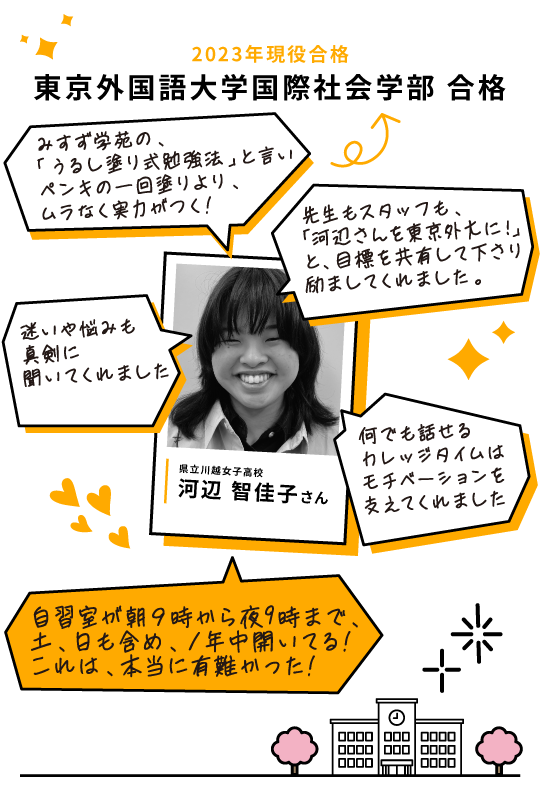 2023年現役合格
東京外国語大学国際社会学部 合格
みすず学苑の、
「うるし塗り式勉強法」と言い
ペンキの一回塗りより、
ムラなく実力がつく!
先生もスタッフも、
「河辺さんを東京外大に!」
と、目標を共有して下さり
励ましてくれました。
迷いや悩みも
真剣に
聞いてくれました
何でも話せる
カレッジタイムは
モチベーションを
支えてくれました
県立川越女子高校
河辺 智佳子さん
自習室が朝9時から夜9時まで、
土、日も含め、1年中開いてる!
これは、本当に有難かった!